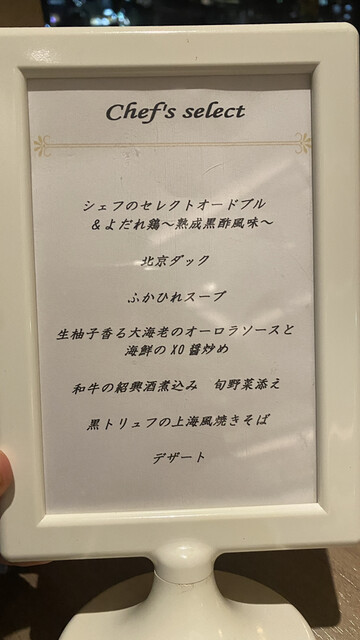 Chef's select
シェフのセレクトオードブル
＆よだれ鶏～熟成黒酢風味～
北京ダック
ふかひれスープ
生柚子香る大海老のオーロラソースと
海鮮のXO醤炒め
和牛の紹興酒煮込み　旬野菜添え
黒トリュフの上海風焼きそば
デザート